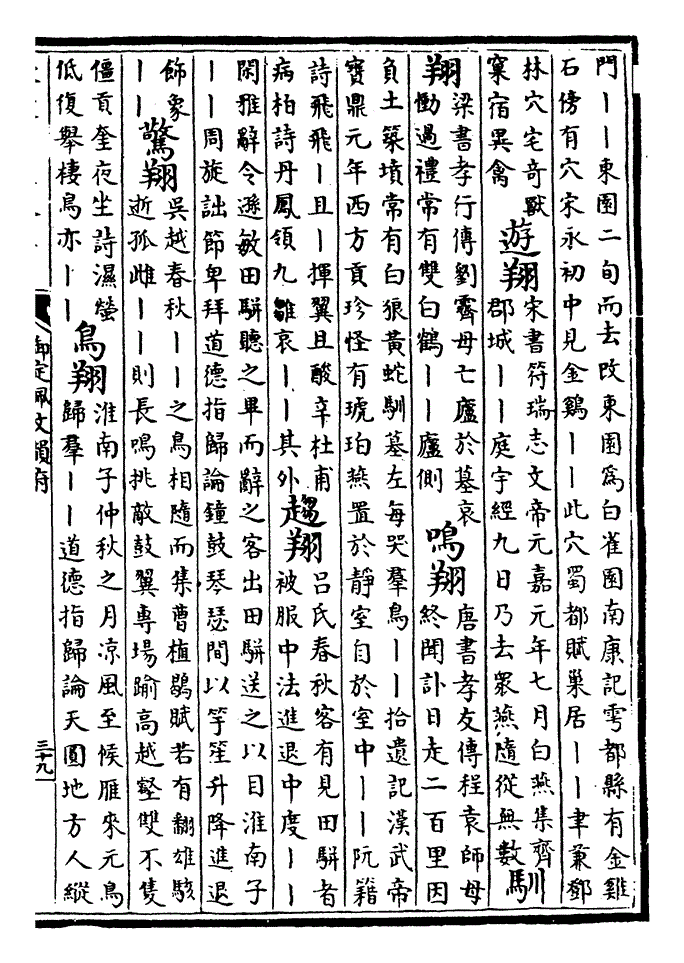 門丨丨東園二旬而去改東園為白雀園南康記雩都縣有金雞
石傍有穴宋永初中見金鷄丨丨此穴蜀都賦巢居丨丨聿兼鄧
林穴宅竒獸
窠宿異禽
遊翔
宋書符瑞志文帝元嘉元年七月白燕集齊
郡城丨丨庭宇經九日乃去衆燕隨從無數
馴
翔
梁書孝行傳劉霽母亡廬於墓哀
慟過禮常有雙白鶴丨丨廬側
鳴翔
唐書孝友傳程袁師母
終聞訃日走二百里因
負土築墳常有白狼黃蛇馴墓左每哭羣鳥丨丨拾遺記漢武帝
寶鼎元年西方貢珍怪有琥珀燕置於靜室自於室中丨丨阮籍
詩飛飛丨且丨揮翼且酸辛杜甫
病柏詩丹鳳領九雛哀丨丨其外
趨翔
呂氏春秋客有見田駢者
被服中法進退中度丨丨
閑雅辭令遜敏田駢聽之畢而辭之客出田駢送之以目淮南子
丨丨周旋詘節卑拜道德指歸論鐘鼓琴瑟間以竽笙升降進退
飾象
丨丨
驚翔
吳越春秋丨丨之鳥相隨而集曹植鷂賦若有翻雄駭
逝孤雌丨丨則長鳴挑敵鼓翼專場踰高越壑雙不隻
僵貢奎夜坐詩濕螢
低復舉棲鳥亦丨丨
鳥翔
淮南子仲秋之月凉風至候雁來元鳥
歸羣丨丨道德指歸論天圓地方人縱
御定佩文韻府
三十九